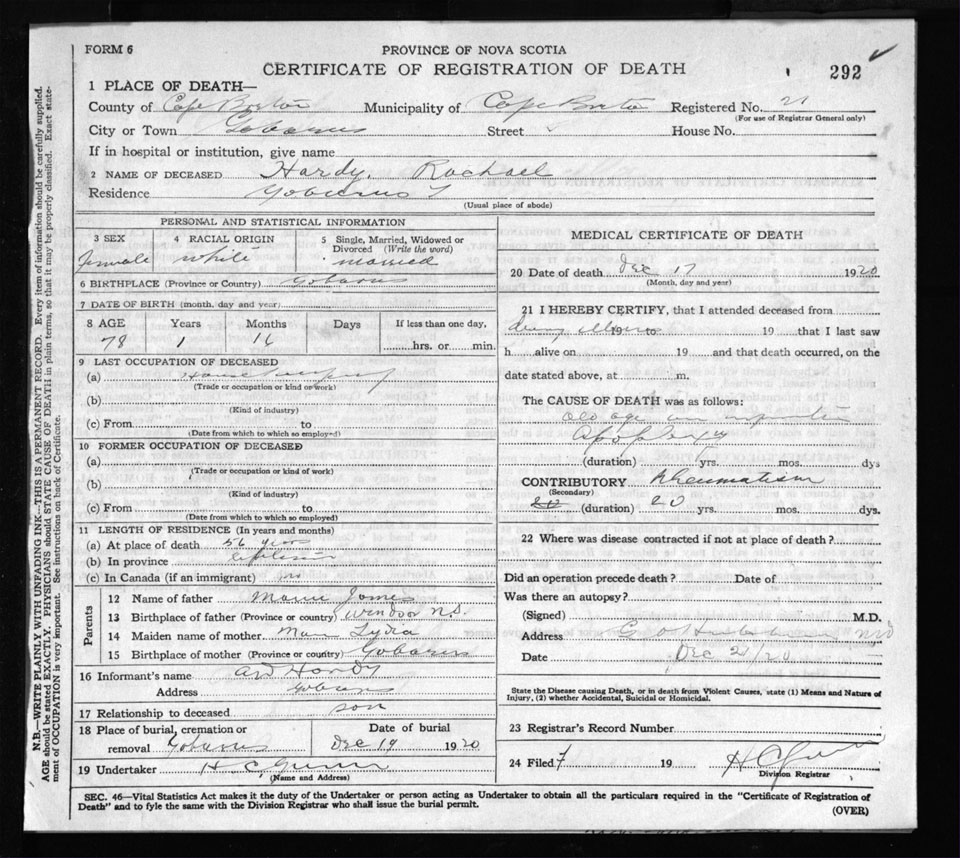 FORM 6
PROVINCE OF NOVA SCOTIA
CERTIFICATE OF REGISTRATION OF DEATH
292
1 PLACE OF DEATH—
County of Cape Breton Municipality of Cape Breton Registered No. 21
(For use of Registrar General only)
City or Town Gabarus Street House No.
If in hospital or institution, give name
2 NAME OF DECEASED Hardy, Rachael
Residence Gabarus
(Usual place of abode)
PERSONAL AND STATISTICAL INFORMATION
3 SEX 4 RACIAL ORIGIN 5 Single, Married, Widowed or Divorced (Write the word)
female white married
6 BIRTHPLACE (Province or Country) Gabarus
7 DATE OF BIRTH (month, day and year)
8 AGE Years Months Days If less than one day,
78 1 16 hrs. or min.
9 LAST OCCUPATION OF DECEASED
(a) House
(Trade or occupation or kind of work)
(b)
(Kind of industry)
(c) From to
(Date from which to which so employed)
10 FORMER OCCUPATION OF DECEASED
(a)
(Trade or occupation or kind of work)
(b)
(Kind of industry)
(c) From to
(Date from which to which so employed)
11 LENGTH OF RESIDENCE (In years and months)
(a) At place of death 56 years
(b) In province
(c) In Canada (if an immigrant)
Parents
12 Name of father James
13 Birthplace of father (Province or country) Windsor N.S.
14 Maiden name of mother Lydia
15 Birthplace of mother (Province or country) Gabarus
16 Informant's name Hardy
Address Gabarus
17 Relationship to deceased son
18 Place of burial, cremation or removal Gabarus
Date of burial
Dec 19 1920
19 Undertaker H C Gunn
(Name and Address)
MEDICAL CERTIFICATE OF DEATH
20 Date of death Dec 17 1920
(Month, day and year)
21 I HEREBY CERTIFY, that I attended deceased from
19 to 19 that I last saw
h alive on 19 and that death occurred, on the
date stated above, at m.
The CAUSE OF DEATH was as follows:
Old age
Apoplexy
(duration) yrs. mos. dys
CONTRIBUTORY Rheumatism
(Secondary)
20 (duration) 20 yrs. mos. dys.
22 Where was disease contracted if not at place of death?
Did an operation precede death? Date of
Was there an autopsy?
(Signed) M.D.
Address MD
Date Dec 21/20
State the Disease causing Death, or in death from Violent Causes, state (1) Means and Nature of
Injury, (2) whether Accidental, Suicidal or Homicidal.
23 Registrar's Record Number
24 Filed 19 H C Gunn
Division Registrar
SEC. 46—Vital Statistics Act makes it the duty of the Undertaker or person acting as Undertaker to obtain all the particulars required in the "Certificate of Registration of
Death" and to fyle the same with the Division Registrar who shall issue the burial permit.
(OVER)
N.B.—WRITE PLAINLY WITH UNFADING INK—THIS IS A PERMANENT RECORD. Every item of information should be carefully supplied.
AGE should be stated EXACTLY. PHYSICIANS should STATE CAUSE OF DEATH in plain terms, so that it may be properly classified. Exact statement of OCCUPATION is very important. See instructions on back of Certificate.